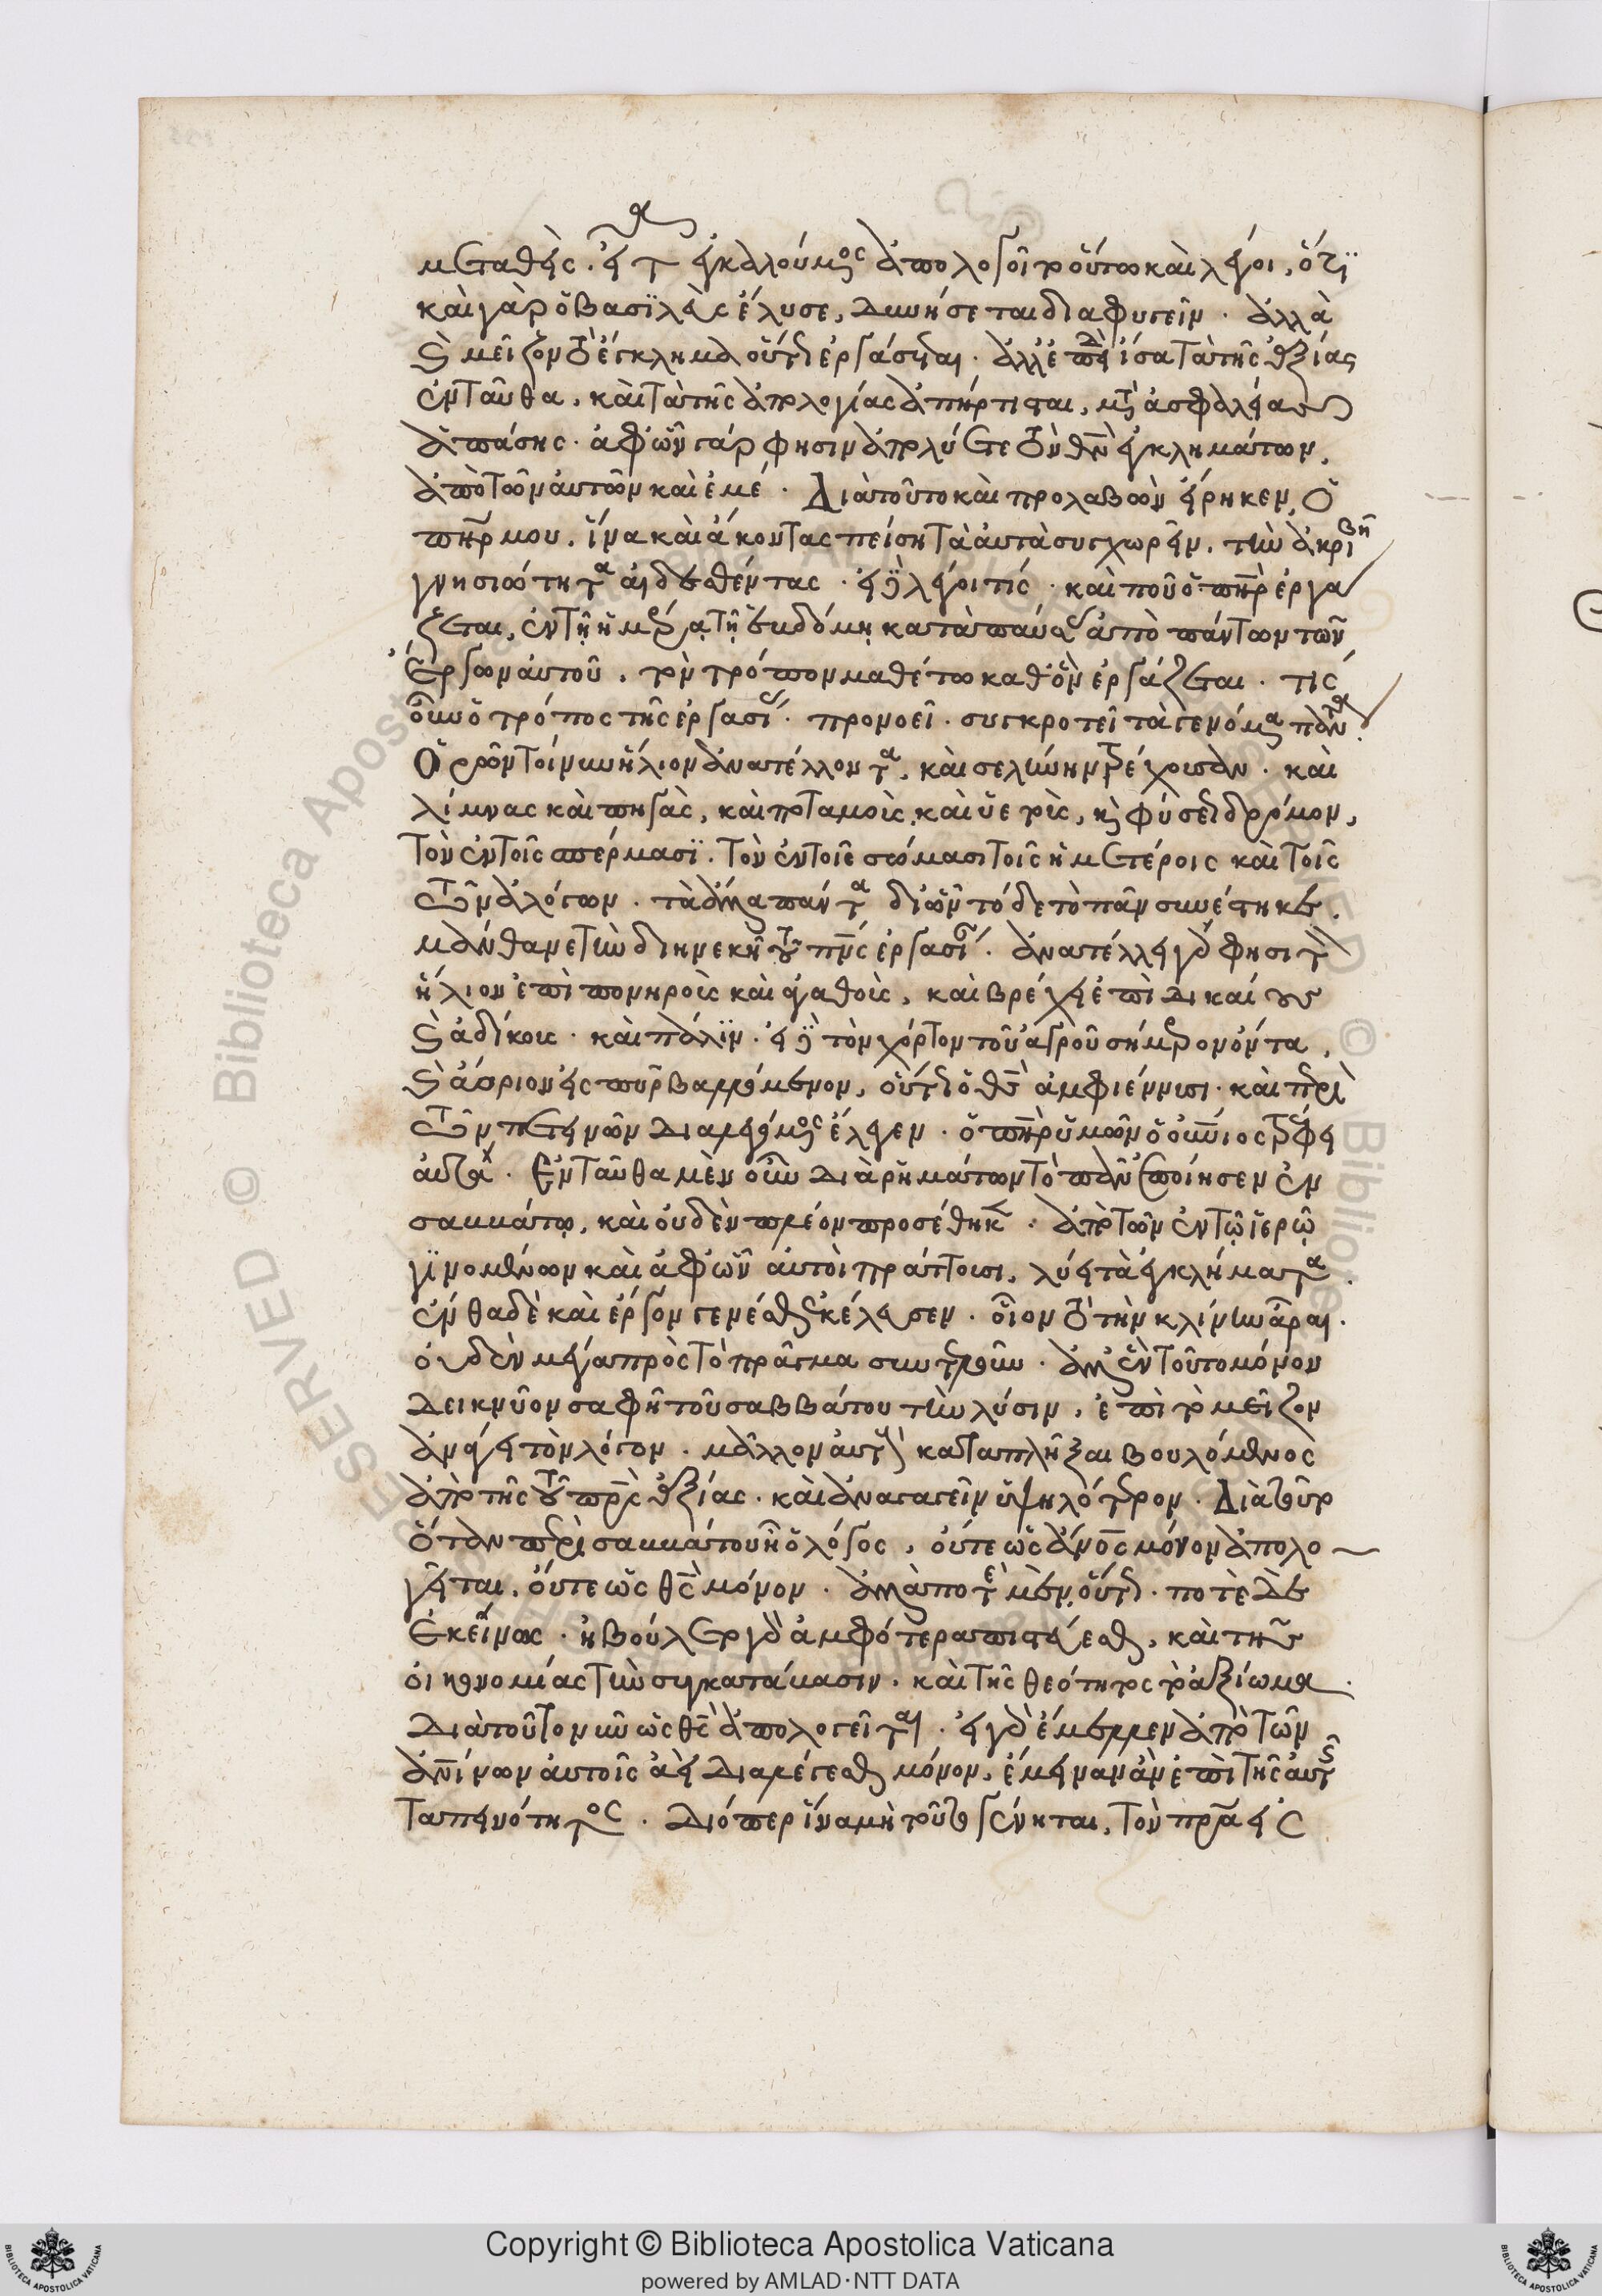 μεταθεὶς. εἴ τ ἐγκαλούμος ἀπολογοῖτο οὕτω καὶ λέγοι, ὅτϊ
καὶ γὰρ ὁ βασϊλεὺς ἔλυσε, δυνήσεται διαφυγεῖν. ἀλλὰ
καὶ μεῖζον τὸ ἔγκλημα οὕτως ἐργάσεται. ἀλλ' ἐπειδὴ ἴσα τὰ τῆς ἀξίας
ἐνταῦθα, καὶ τὰ τῆς ἀπολογίας ἀπήρτισται, μετὰ ἀσφαλείας
ἁπάσης. ἀφ' ὧν γάρ φησιν ἀπολύετε τὸν θν ἐγκλημάτων,
ἀπὸ τῶν αὐτῶν καὶ ἐμέ. Διὰ τοῦτο καὶ προλαβὼν εἴρηκεν, ὁ
πηρ μου. ἵνα καὶ ἄκοντας πείσῃ τὰ αὐτὰ συγχωρεῖν, τὴν ἀκριβῆ
γνησιώτητα αἰδεσθέντας. εἰ δὲ λέγοι τίς. καὶ ποῦ ὁ πηρ ἐργα
ζεται, ἐν τῇ ἡμέρᾳ τῇ ἑβδόμῃ καταπαύσας ἀπὸ πάντων τῶν
ἔργων αὐτοῦ, τὸν τρόπον μαθέτω καθ' ὃν ἐργάζεται. τίς
οὖν ὁ τρόπος τῆς ἐργασίας. προνοεῖ. συγκροτεῖ τὰ γενόμενα πάντα.
Ὁρῶν τοίνυν ἥλιον ἀνατέλλοντα, καὶ σελήνην τρέχουσαν. καὶ
λίμνας καὶ πηγὰς, καὶ ποταμοὺς, καὶ ὑετοὺς, καὶ φύσεως δρόμον,
τὸν ἐν τοῖς σπέρμασϊ. τὸν ἐν τοῖς σώμασι τοῖς ἡμετέροις καὶ τοῖς
τῶν ἀλόγων. τὰ ἄλλα πάντα δι' ὧν τόδε τὸ πᾶν συνέστηκε.
μάνθανε τὴν διηνεκῆ τοῦ πρς ἐργασίαν. ἀνατέλλει γὰρ φησι τὸν
ἥλιον ἐπὶ πονηροὺς καὶ ἀγαθοὺς, καὶ βρέχει ἐπὶ δικαίους
καὶ ἀδίκους. καὶ πάλϊν. εἰ δὲ τὸν χόρτον τοῦ ἀγροῦ σήμερον ὄντα,
καὶ αὔριον εἰς πῦρ βαλλόμενον, οὕτως ὁ θς ἀμφιέννυσι. καὶ περὶ
τῶν πετεινῶν διαλεγόμος ἔλεγεν. ὁ πηρ ὑμῶν ὁ οὐνιος τρέφει
αὐτά. Ἐνταῦθα μὲν οὖν διὰ ῥημάτων τὸ πᾶν ἐποίησεν ἐν
σαββάτῳ, καὶ οὐδὲν πλέον προσέθηκεν. ἀπὸ τῶν ἐν τῷ ἱερῷ
γϊνομένων καὶ ἀφ' ὧν αὐτοὶ πράττουσι, λύει τὰ ἐγκλήματα.
ἔνθα δὲ καὶ ἔργον γενέσθαι ἐκέλευσεν. οἷον τὸ τὴν κλίνην ἆραι.
οὐδὲν μέγα πρὸς τὸ πρᾶγμα συντελοῦν. ἀλλ' ἓν τοῦτο μόνον
δεικνῦον σαφῆ τοῦ σαββάτου τὴν λύσιν, ἐπὶ τὸ μεῖζον
ἀνάγει τὸν λόγον. μᾶλλον αὐτοὺς καταπλῆξαι βουλόμενος
ἀπὸ τῆς τοῦ πρς ἀξίας. καὶ ἀναγαγεῖν ὑψηλότερον. Διὰ τοῦτο
ὅταν περὶ σαββάτου ἦ ὁ λόγος, οὔτε ὡς ἄνος μόνον ἀπολο
γεῖται, οὔτε ὡς θς μόνον. ἀλλὰ ποτὲ μὲν οὕτως. ποτὲ δὲ
ἐκείνως. ἠβούλετο γὰρ ἀμφότερα πιστεύεσθαι, καὶ τῆς
οἰκονομίας τὴν συγκατάβασιν. καὶ τῆς θεότητος τὸ ἀξίωμα.
Διὰ τοῦτο νῦν ὡς θς ἀπολογεῖται. εἰ γὰρ ἔμελλεν ἀπὸ τῶν
ἀνίνων αὐτοῖς ἀεὶ διαλέγεσθαι μόνον, ἔμειναν ἂν ἐπὶ τῆς αὐτῆς
ταπεινότητος. Διόπερ ἵνα μὴ τοῦτο γένηται, τὸν πρα εἰς